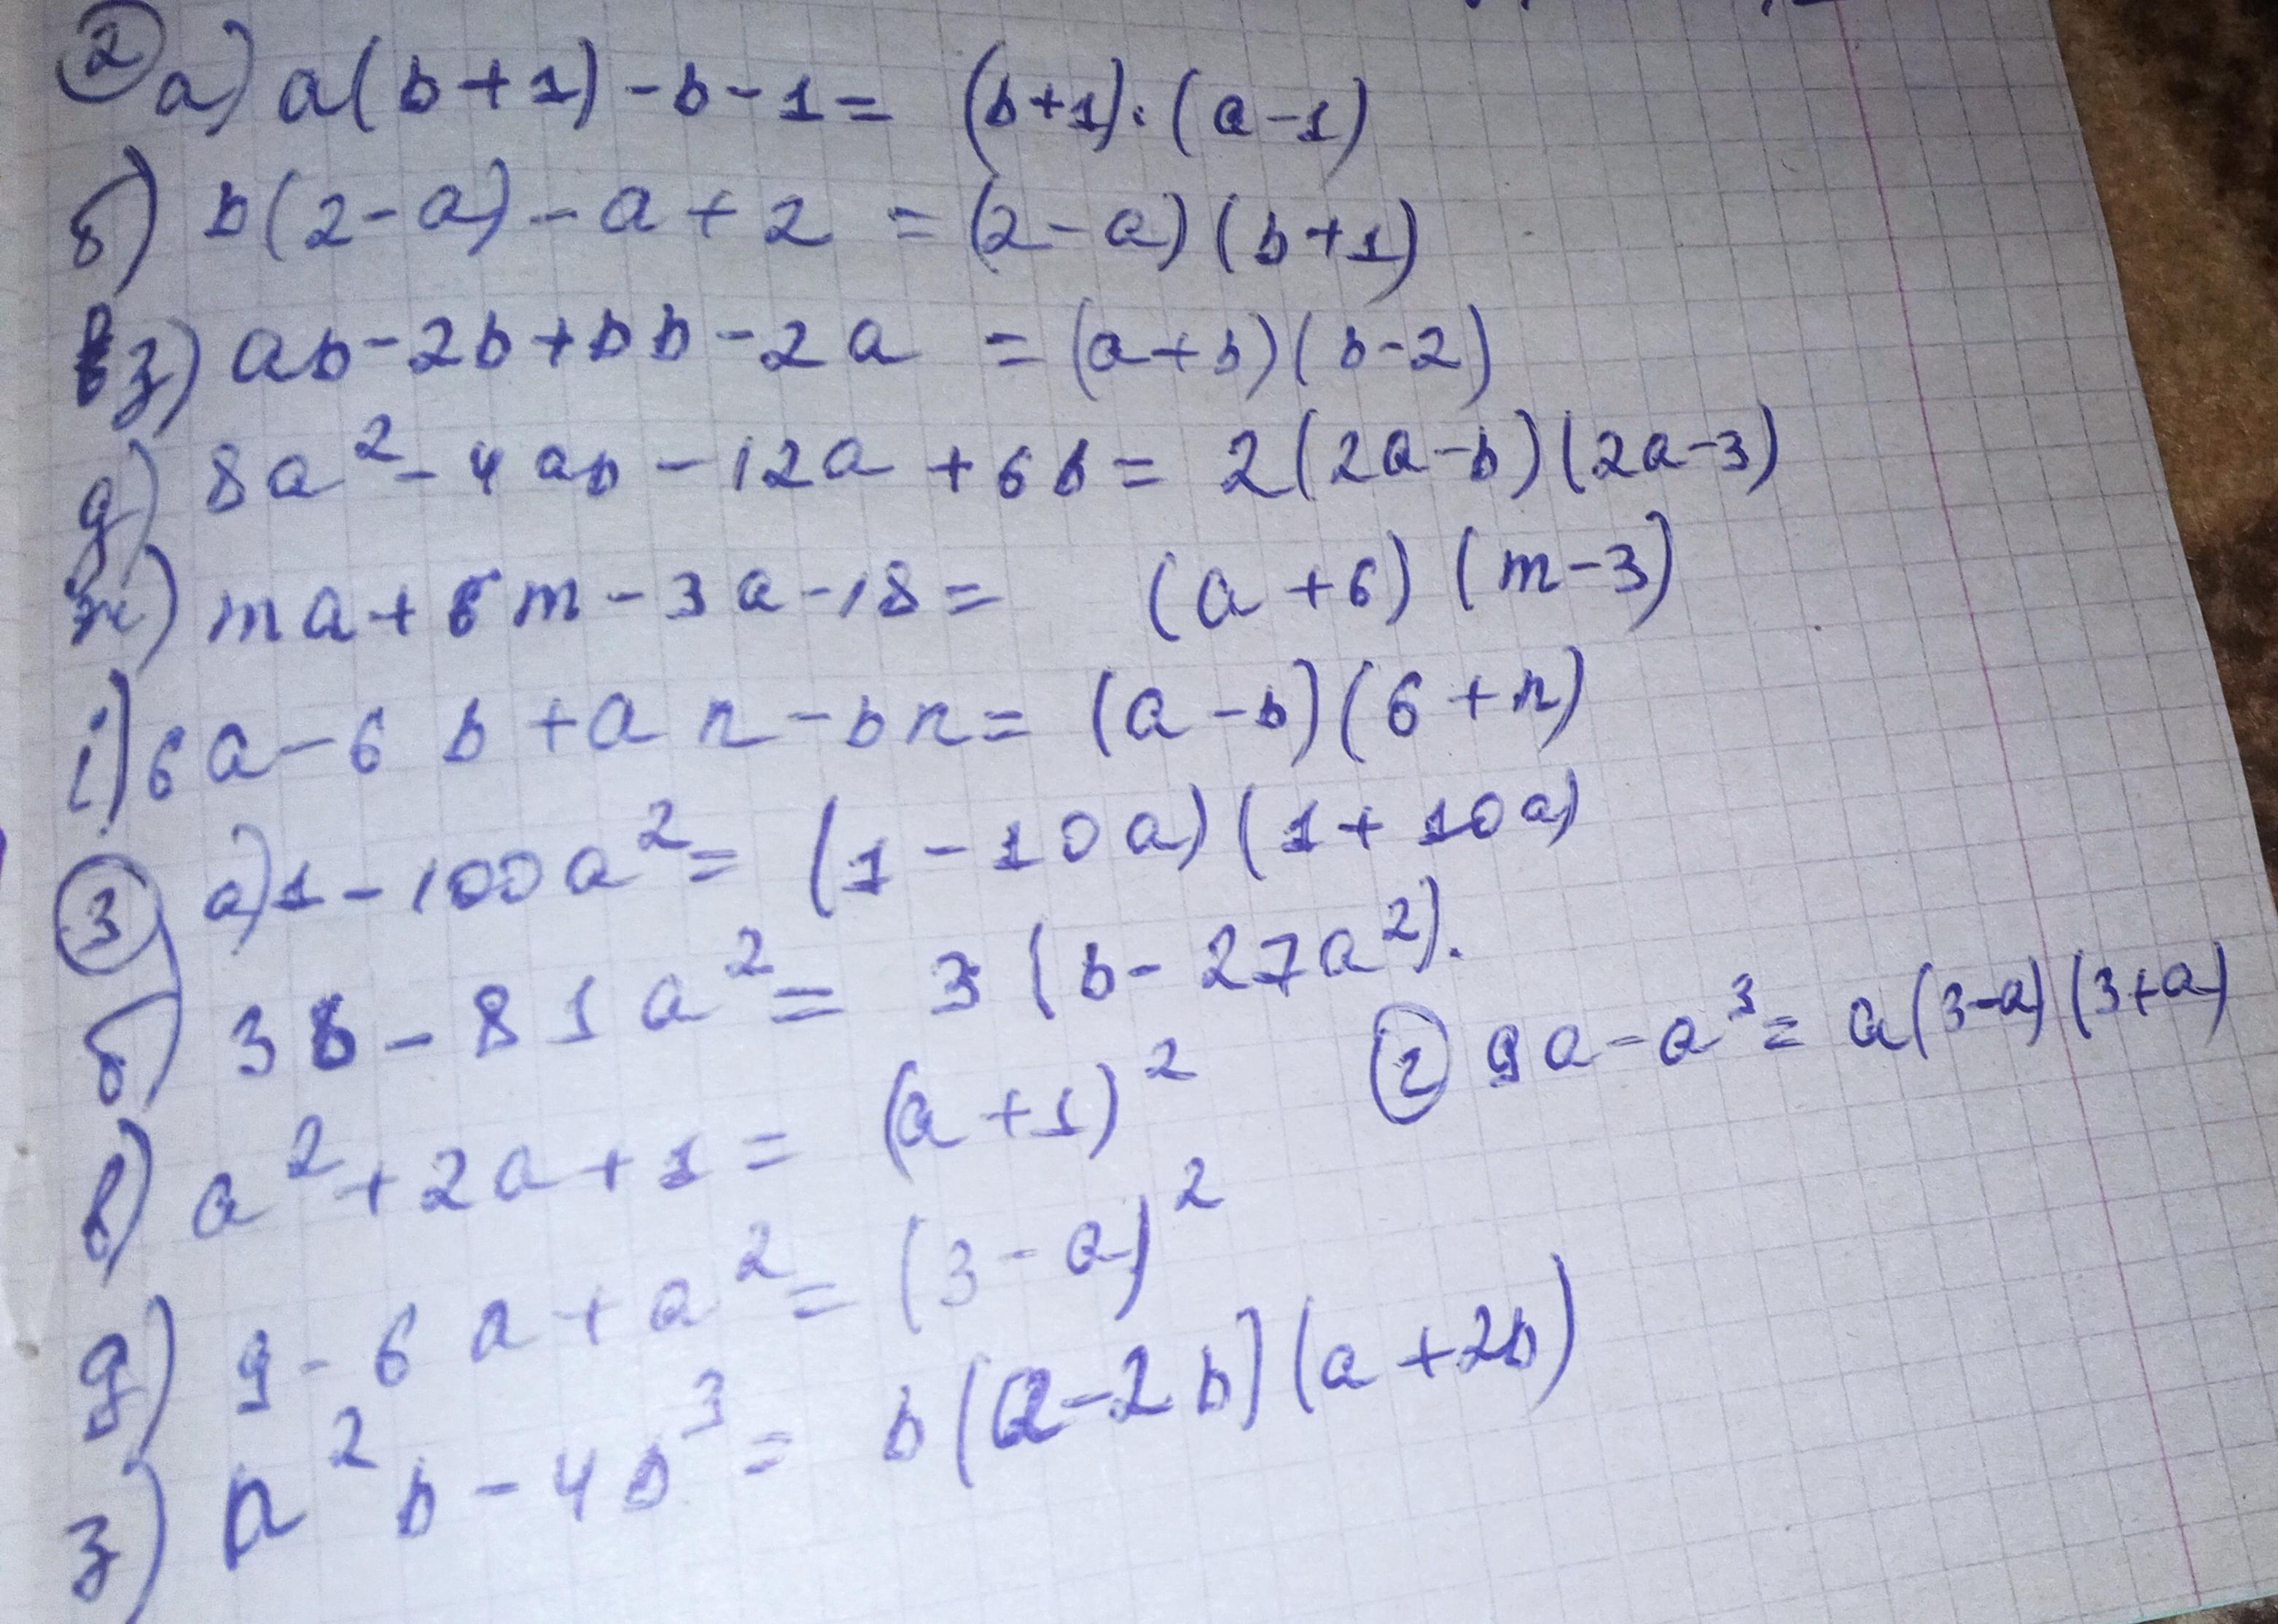 ② а) a(b+1)-b-1= (b+1)·(a-1)
б) b(2-a)-a+2 = (2-a)(b+1)
з) ab-2b+bb-2a = (a+b)(b-2)
д) 8a²-4ab-12a+6b= 2(2a-b)(2a-3)
ж) ma+6m-3a-18= (a+6)(m-3)
і) 6a-6b+an-bn= (a-b)(6+n)
③ а) 1-100a²= (1-10a)(1+10a)
б) 3b-81a²= 3(b-27a²).
г 9a-a³= a(3-a)(3+a)
в) a²+2a+1= (a+1)²
д) 9-6a+a²= (3-a)²
з) a²b-4b³= b(a-2b)(a+2b)